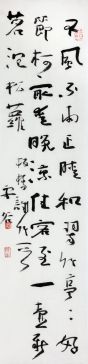 不風不雨正晴和翠竹亭〻好
節柯最愛晚涼佳客至一壺新
茗泡松蘿
板橋詩